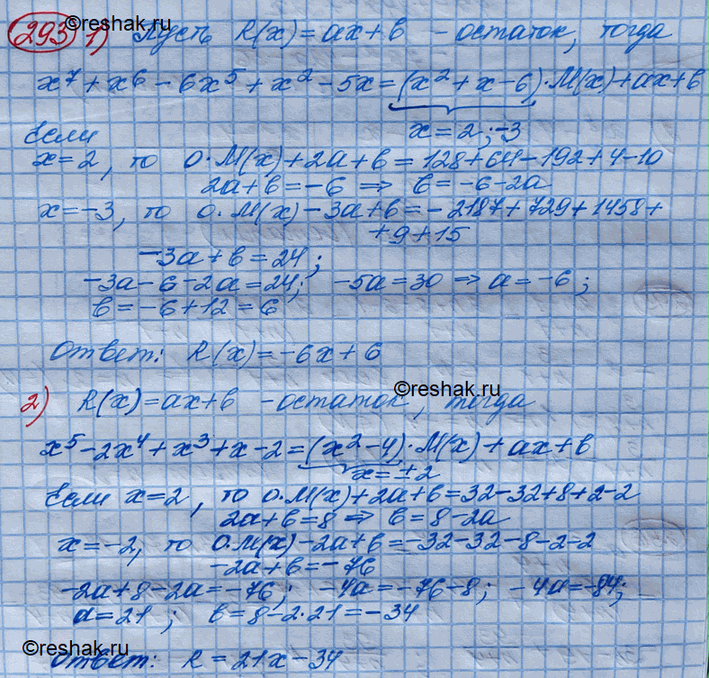 ©reshak.ru
293 1) Пусть R(x)=ax+b - остаток, тогда
x⁷+x⁶-6x⁵+x²-5x=(x²+x-6)·M(x)+ax+b
x=2;-3
Если
x=2, то 0·M(x)+2a+b=128+64-192+4-10
2a+b=-6 ⇒ b=-6-2a
x=-3, то 0·M(x)-3a+b=-2187+729+1458+
+9+15
-3a+b=24;
-3a-6-2a=24; -5a=30 ⇒ a=-6;
b=-6+12=6
Ответ: R(x)=-6x+6
©reshak.ru
2) R(x)=ax+b - остаток, тогда
x⁵-2x⁴+x³+x-2=(x²-4)·M(x)+ax+b
x=±2
Если x=2, то 0·M(x)+2a+b=32-32+8+2-2
2a+b=8 ⇒ b=8-2a
x=-2, то 0·M(x)-2a+b=-32-32-8-2-2
-2a+b=-76
-2a+8-2a=-76; -4a=-76-8; -4a=-84;
a=21; b=8-2·21=-34
©reshak.ru
Ответ: R=21x-34